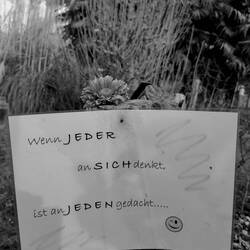 Wenn JEDER
an SICH denkt,
ist an JEDEN gedacht.....